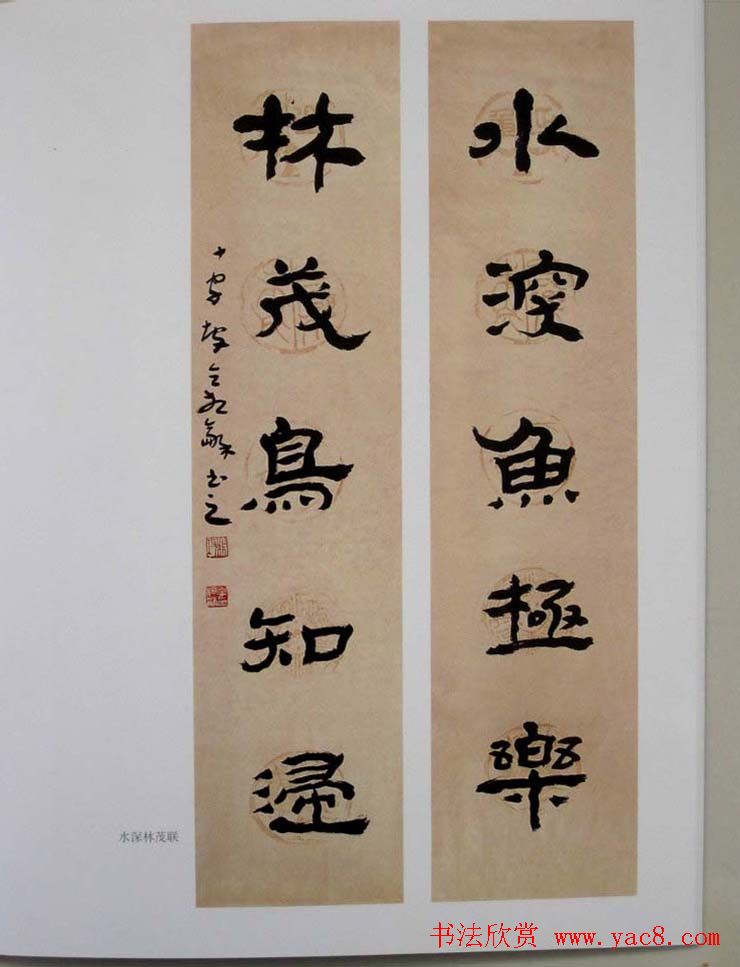 水深魚極樂
林茂鳥知歸
水深林茂联
书法欣赏 www.yac8.com